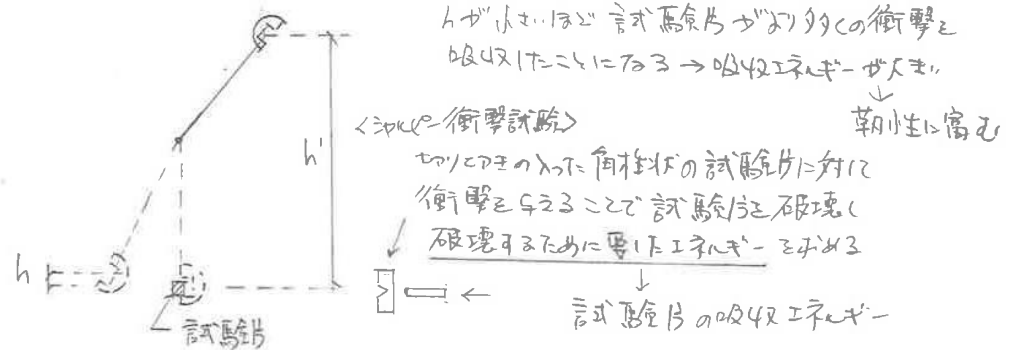 hが小さいほど試験片がより多くの衝撃を
吸収したことになる→吸収エネルギーが大きい
↓
靭性に富む
<シャルピー衝撃試験>
切り欠きの入った角柱状の試験片に対して
衝撃を与えることで試験片を破壊し
破壊するために要したエネルギーを求める
↓
試験片の吸収エネルギー
h'
h
試験片